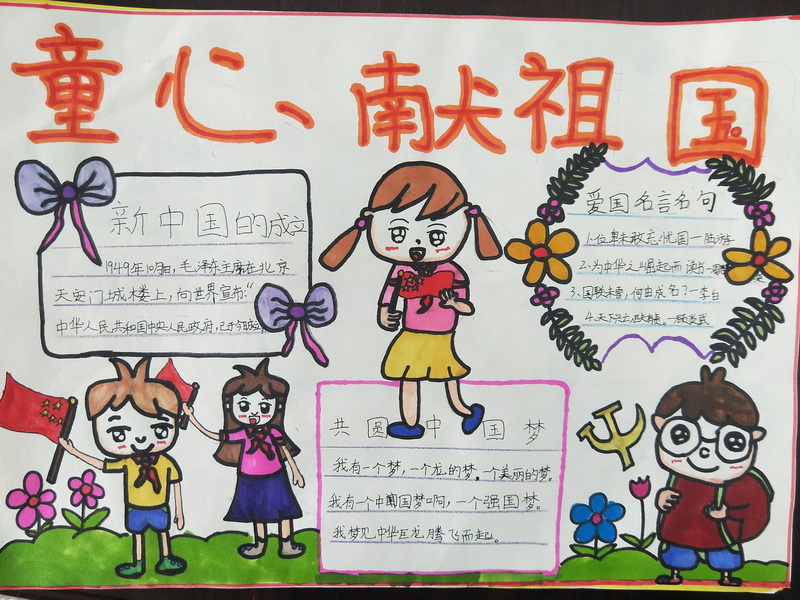 童心、献祖国
新中国的成立
1949年10月1日,毛泽东主席在北京
天安门城楼上,向世界宣布:“
中华人民共和国中央人民政府,已于今日成立
爱国名言名句
1.位卑未敢忘忧国一陆游
2.为中华之崛起而读书一周恩来
3.国耻未雪,何由成名?一李白
4.天下兴亡,匹夫有责。一顾炎武
共圆中国梦
我有一个梦,一个龙的梦。一个美丽的梦。
我有一个中国梦啊,一个强国梦。
我梦见中华巨龙腾飞而起。